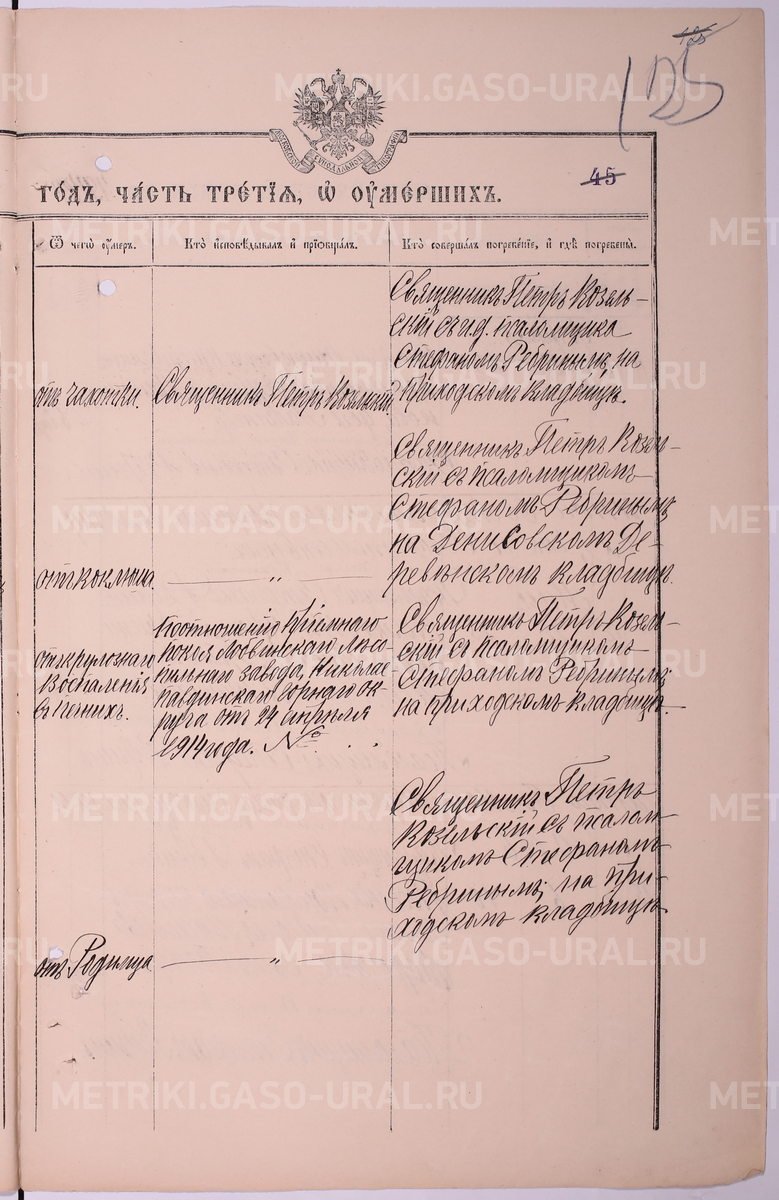 125
125
45
МОСКОВСКОЙ СѴНОДАЛЬНОЙ ТИПОГРАФІИ
го́дъ, ча́сть тре́тїѧ, ѡ҆ оу҆ме́ршихъ.
Ѿ чегѡ̀ оу҆́меръ.
Кто̀ и҆сповѣ́дывалъ и҆ прїѡбща́лъ.
Кто̀ соверша́лъ погребе́нїе, и҆ гдѣ̀ погребены̀.
отъ чахотки.
Священникъ Петръ Козельскій
Священникъ Петръ Козель-
скій съ и.д. псаломщика
Стефаномъ Ребринымъ, на
приходскомъ кладбищѣ.
отъ коклюша.
— " —
Священникъ Петръ Козель-
скій съ псаломщикомъ
Стефаномъ Ребринымъ
на Денисовскомъ де-
ревенскомъ кладбищѣ.
отъ крупознаго
воспаленія
легкихъ.
По отношенію Пріемнаго
покоя Лобвинскаго лѣсо-
пильнаго завода, Николае-
павдинскаго горнаго ок-
руга отъ 24 апрѣля
1914 года. №
Священникъ Петръ Козель-
скій съ псаломщикомъ
Стефаномъ Ребринымъ,
на приходскомъ кладбищѣ.
отъ Родимца
— " —
Священникъ Петръ
Козельскій съ псалом-
щикомъ Стефаномъ
Ребринымъ, на при-
ходскомъ кладбищѣ.
METRIKI.GASO-URAL.RU